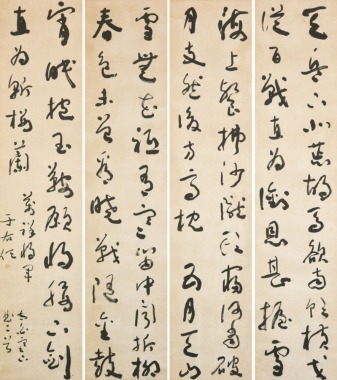 天兵下北荒胡馬欲南飲橫戈
從百戰直為銜恩甚握雪
海上餐拂沙隴頭寢何當破
月支然後方高枕 五月天山
雪無花祗有寒笛中聞折柳
春色未曾看曉戰隨金鼓
宵眠抱玉鞍願將腰下劍
直為斬樓蘭
萬祥將軍
于右任
太白塞下
曲二首